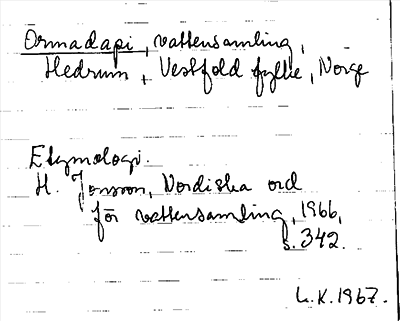 Ormadapi, vattensamling,
Hedrum, Vestfold fylke, Norge
Etymologi.
H. Jonsson, Nordiska ord
för vattensamling, 1966,
s. 342.
L.K. 1967.